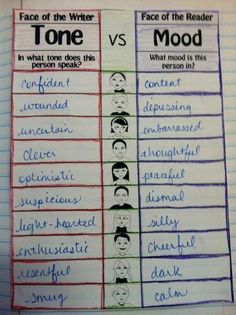 Face of the Writer Face of the Reader
Tone VS Mood
In what tone does this What mood is this
person speak? person in?
confident content
wounded depressing
uncertain embarrassed
clever thoughtful
optimistic peaceful
suspicious dismal
light-hearted silly
enthusiastic cheerful
resentful dark
smug calm